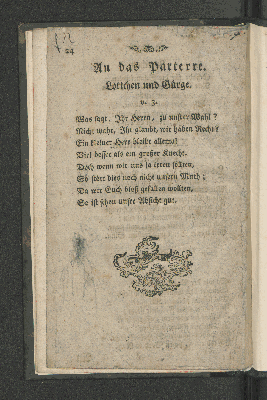 24
An das Parterre.
Lottchen und Gürge.
v. 3.
Was sagt, Ihr Herrn, zu unsrer Wahl?
Nicht wahr, Ihr glaubt, wir haben Recht?
Ein kleiner Herr bleibt allemal
Viel besser als ein großer Knecht.
Doch wenn wir uns ja irren sollten,
So stört dies noch nicht unsern Muth;
Da wir Euch bloß gefallen wollten,
So ist schon unsre Absicht gut.